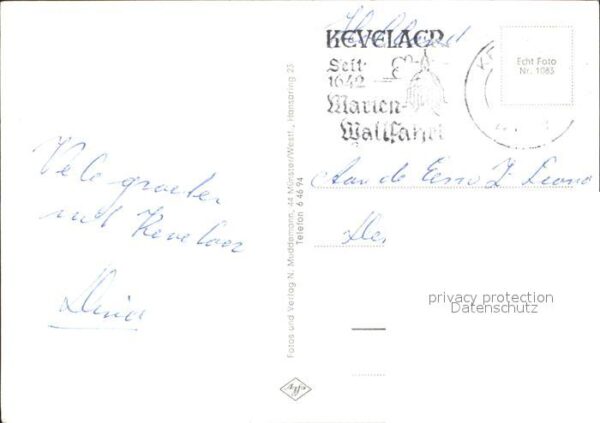 Vele groeten
uit Kevelaer
Fotos und Verlag N. Meddemann, 44 Münster/Westf., Hansaring 23
Telefon 6 46 94
Agfa
Holland
KEVELAER
Seit
1642
Marien-
Wallfahrt
Echt Foto
Nr. 1085
Aan de Eerw Z.
privacy protection
Datenschutz